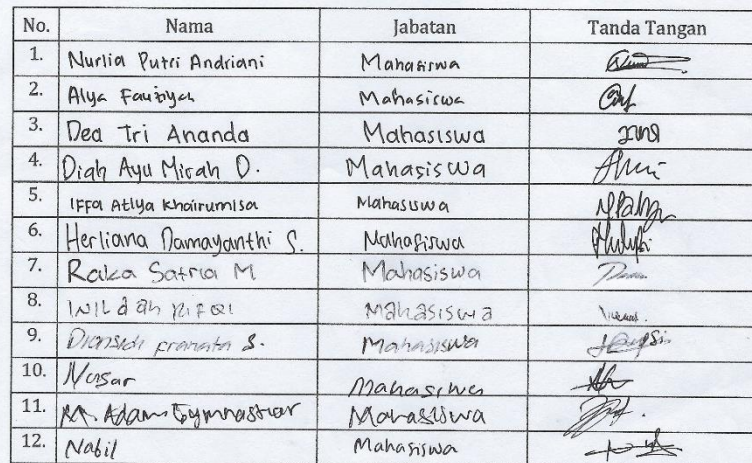 No. Nama Jabatan Tanda Tangan
1. Nurlia Putri Andriani Mahasiswa
2. Alya Fauziyah Mahasiswa
3. Dea Tri Ananda Mahasiswa
4. Diah Ayu Mirah D. Mahasiswa
5. Iffa Atlya Khairumisa Mahasiswa
6. Herliana Damayanthi S. Mahasiswa
7. Raka Satria M Mahasiswa
8. Mahasiswa
9. pranata S. Mahasiswa
10. Nusar Mahasiswa
11. M. Adam Gymnastiar Mahasiswa
12. Nabil Mahasiswa